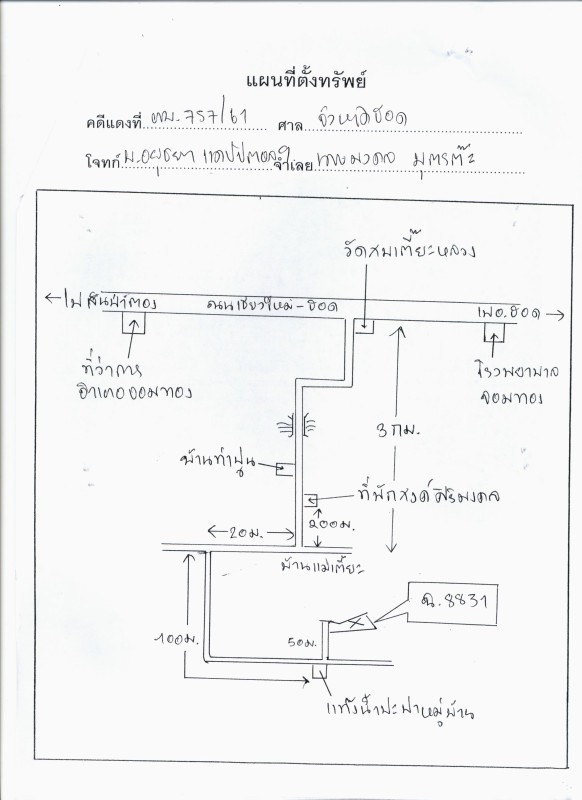 แผนที่ตั้งทรัพย์
คดีแดงที่ ผบ.757/61 ศาล จังหวัดฮอด
โจทก์ บ.อยุธยา แคปปิตอลฯ จำเลย นางมงคล
วัดสบเตี๊ยะหลวง
ไปสันป่าตอง ถนนเชียงใหม่-ฮอด ไปอ.ฮอด
ที่ว่าการ
อำเภอจอมทอง
โรงพยาบาล
จอมทอง
3 กม.
บ้านทำปูน
ที่พักสงฆ์ศิริมงคล
20ม. 200ม.
บ้านแม่เตี๊ยะ
ฉ.8831
100ม. 50ม.
แท้งน้ำปะปาหมู่บ้าน